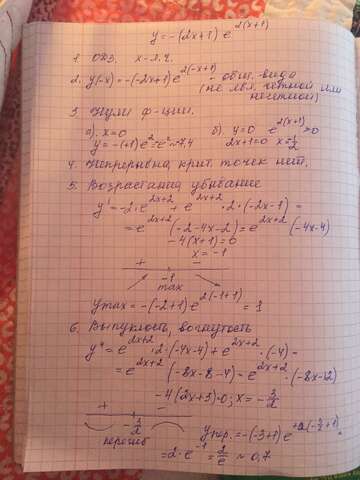 y=-(2x+1) e^{2(x+1)}
1. ОДЗ. x-л.ч.
2. y(-x)=-(-2x+1)e^{2(-x+1)} - общ. вида
(не явл. четной или
нечетной)
3. Нули ф-ции.
а). x=0 б). y=0 e^{2(x+1)}>0
y=-(+1)e^{2}=-e^{2}≈-7,4 2x+1=0 x=-\frac{1}{2}
4. Непрерывна, крит. точек нет.
5. Возрастание, убывание
y'=-2·e^{2x+2}+e^{2x+2}·2·(-2x-1)=
=e^{2x+2}(-2-4x-2)=e^{2x+2}(-4x-4)
-4(x+1)=0
x=-1
+ -
-1
max
y max=-(-2+1)e^{2(-1+1)}=1
6. Выпуклость, вогнутость
y"=e^{2x+2}·2·(-4x-4)+e^{2x+2}·(-4)=
=e^{2x+2}(-8x-8-4)=e^{2x+2}·(-8x-12)
-4(2x+3)=0; x=-\frac{3}{2}
+ -
-\frac{3}{2}
перегиб y пер.=-(-3+1)e^{+2(-\frac{3}{2}+1)}
=2·e^{-1}=\frac{2}{e}≈0,7